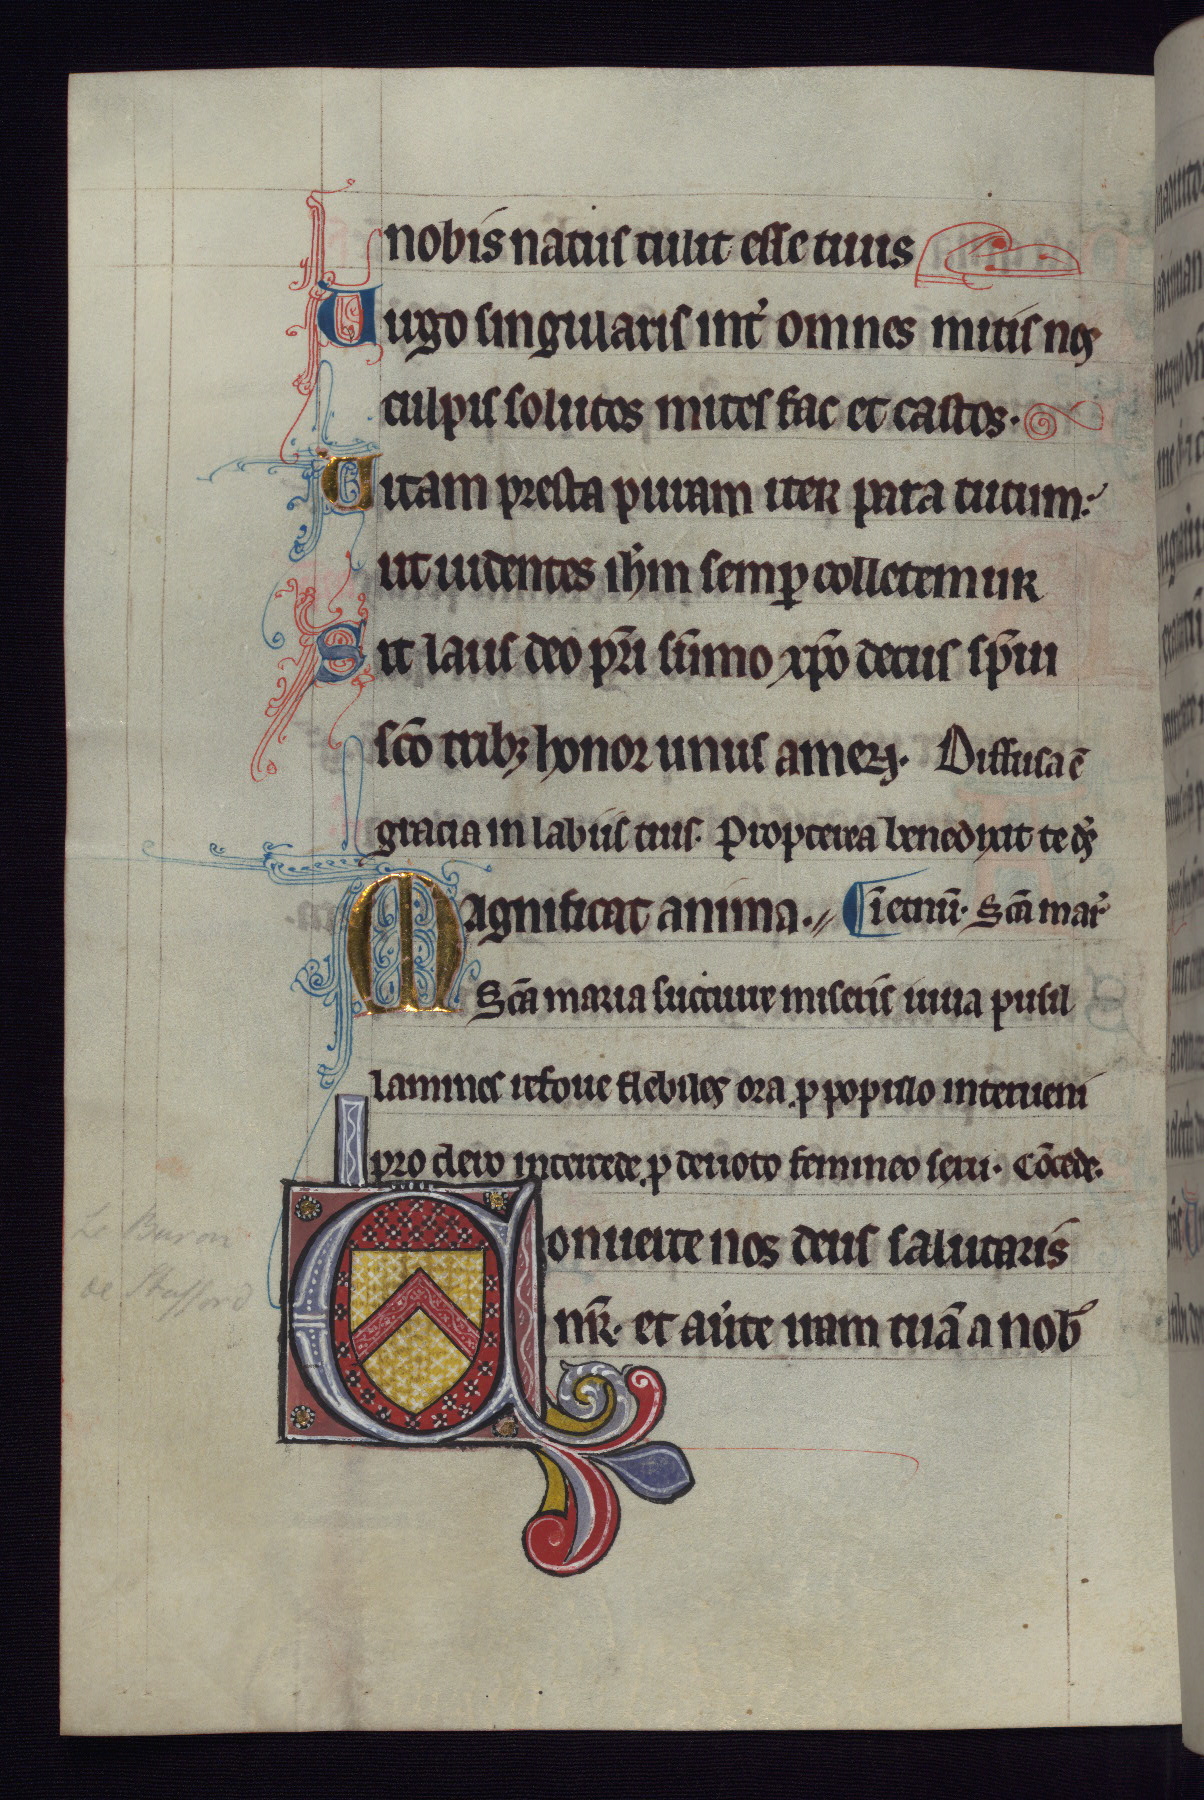 nobis natus tulit esse tuus
Uirgo singularis int' omnes mitis nos
culpis solutos mites fac et castos.
Uitam presta puram iter para tutum.
ut uidentes ihm semp colletemur
Sit laus deo pri summo xpo decus spui
sco tribz honor unus amen. Diffusa e
gracia in labiis tuis. Propterea benedixit te ds
Magnificat anima. Sca mar'
Sca maria succurre miseris iuua pusil
lanimes refoue flebiles ora p populo interueni
pro clero intercede p deuoto femineo sexu. Cocede.
Conuerte nos deus salutaris
nr. et au'te iram tua a nob'
Le Baron
de Stafford